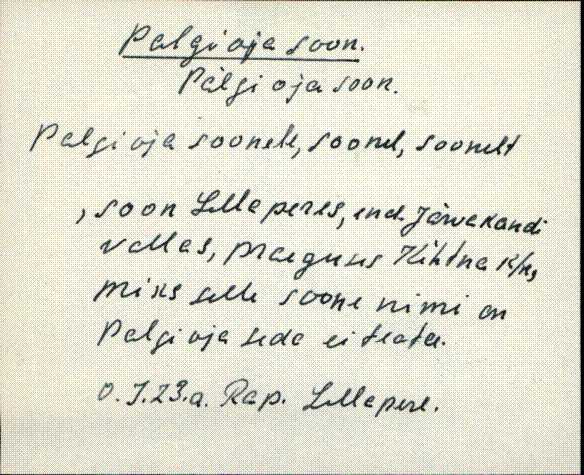 Palgi oja soon.
Pàlgi oja soon.
Palgi oja soonele, soonel, soonelt
, soon Lellaperes, end. Järvakandi
vallas, praeguses Kehtna k/n,
miks selle soone nimi on
Palgi oja seda ei teata.
O. J. 23.a. Rap. Lellapere.